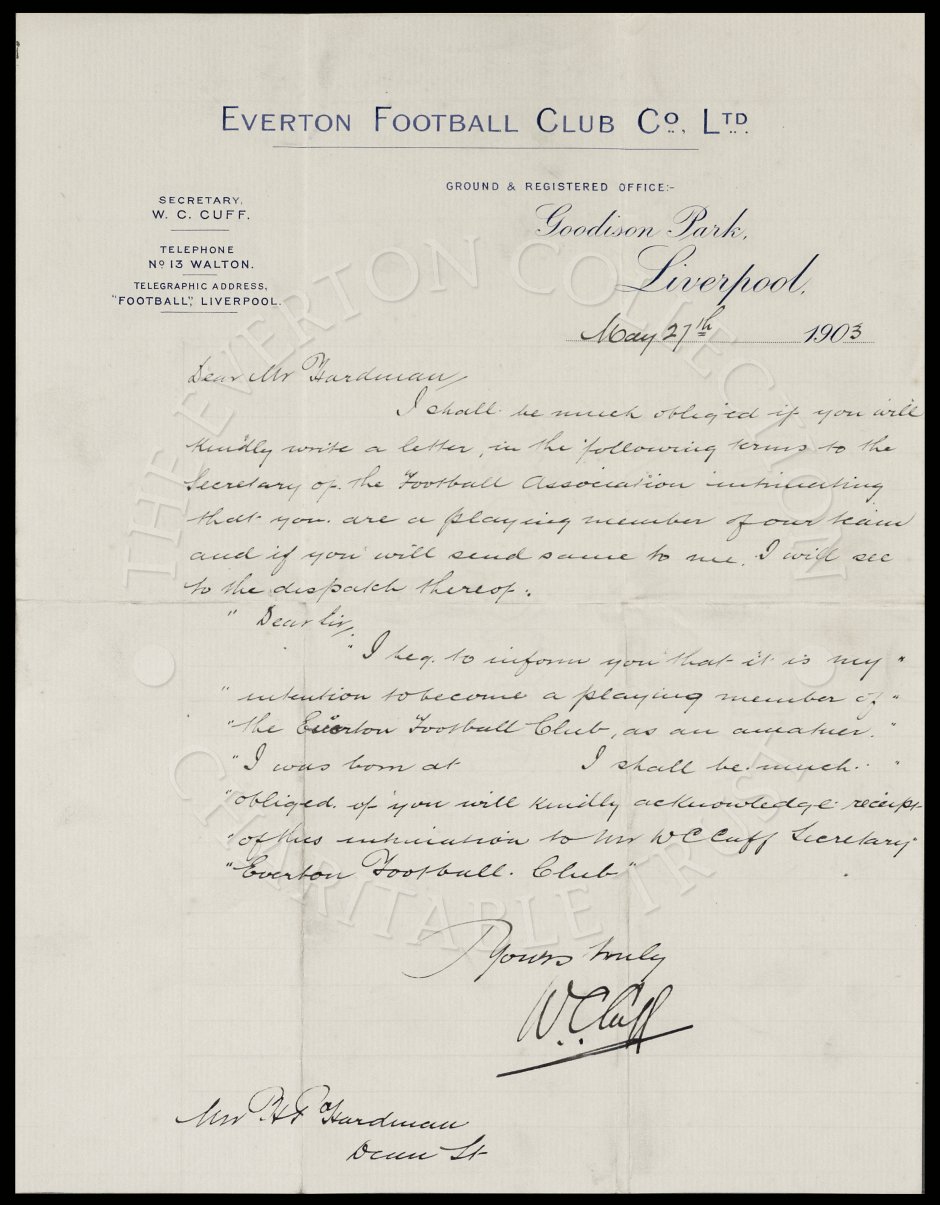 EVERTON FOOTBALL CLUB Co., LTD.
GROUND & REGISTERED OFFICE:-
SECRETARY.
W. C. CUFF.
Goodison Park,
TELEPHONE
No 13 WALTON.
Liverpool,
TELEGRAPHIC ADDRESS,
"FOOTBALL", LIVERPOOL.
May 27th 1903
Dear Mr Hardman,
I shall be much obliged if you will
kindly write a letter, in the following terms to the
Secretary of the Football Association intimating
that you are a playing member of our team
and if you will send same to me, I will see
to the dispatch thereof:
" Dear Sir,
"I beg to inform you that it is my "
" intention to become a playing member of "
"the Everton Football Club, as an amatuer. "
"I was born at I shall be much "
"obliged if you will kindly acknowledge receipt
"of this intimation to Mr W C Cuff Secretary
"Everton Football Club"
Yours truly
W. C. Cuff
Mr H P Hardman
St
THE EVERTON COLLECTION
CHARITABLE TRUST